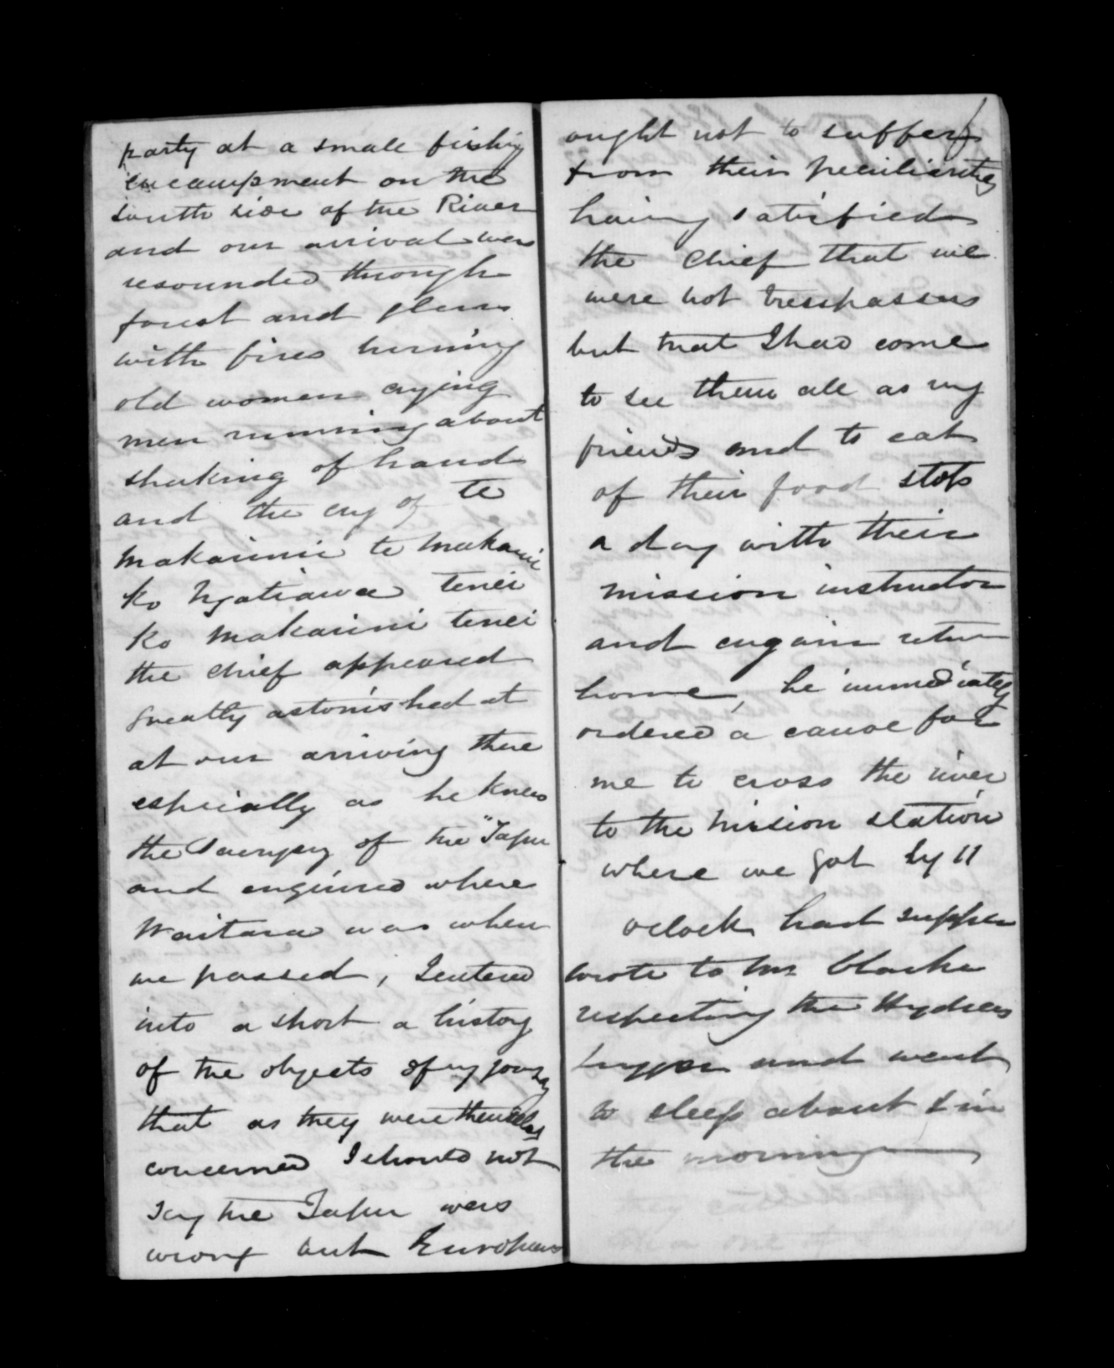 party at a small fishing
encampment on the
south side of the River
and our arrival was
resounded through
forest and glens
with fires burning
old women crying
men running about
shaking of hand
and the cry of te
makarini te makarini
ko Ngatiawa tenei
ko makarini tenei
the chief appeared
greatly astonished at
at our arriving there
espicially as he knew
the of the "Tapu
and enquired where
Waitara was when
we passed, I entered
into a short a history
of the objects of my journey
that as they were themselves
concerned I should not
say the Tapu was
wrong but Europeans
ought not to suffer
from their peculiarities
having satisfied
the chief that we
were not tresspassers
but that I had come
to see them all as my
friends and to eat
of their food stop
a day with their
mission instructor
and return
home, he immediately
ordered a canoe for
me to cross the river
to the mission station
where we got by 11
oclock had supper
wrote to Mr
respecting the
and went
to sleep about 1 in
the morning